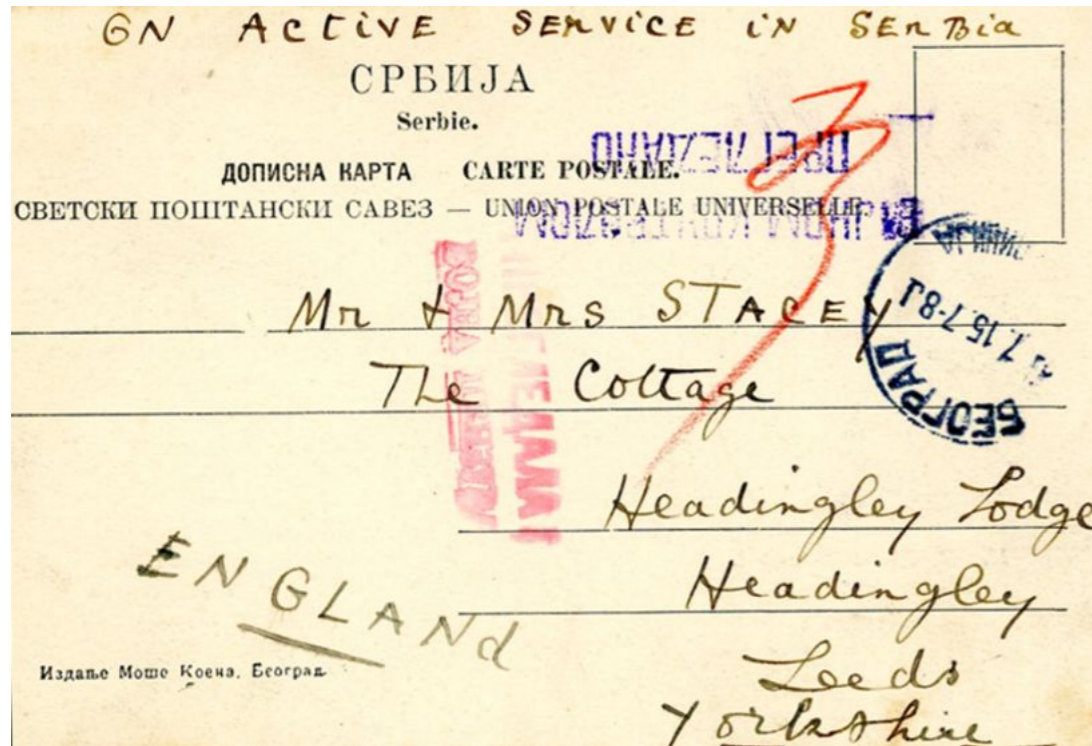 ON ACTIVE SERVICE IN SERBIA
СРБИЈА
Serbie.
ДОПИСНА КАРТА CARTE POSTALE.
СВЕТСКИ ПОШТАНСКИ САВЕЗ — UNION POSTALE UNIVERSELLE.
ПРЕГЛЕДАНО
3
БЕОГРАД
7.15.7-8
Mr & Mrs STACEY
The Cottage
Headingley Lodge
Headingley
Leeds
Yorkshire
ENGLANd
Издање Моше Коена. Београд.